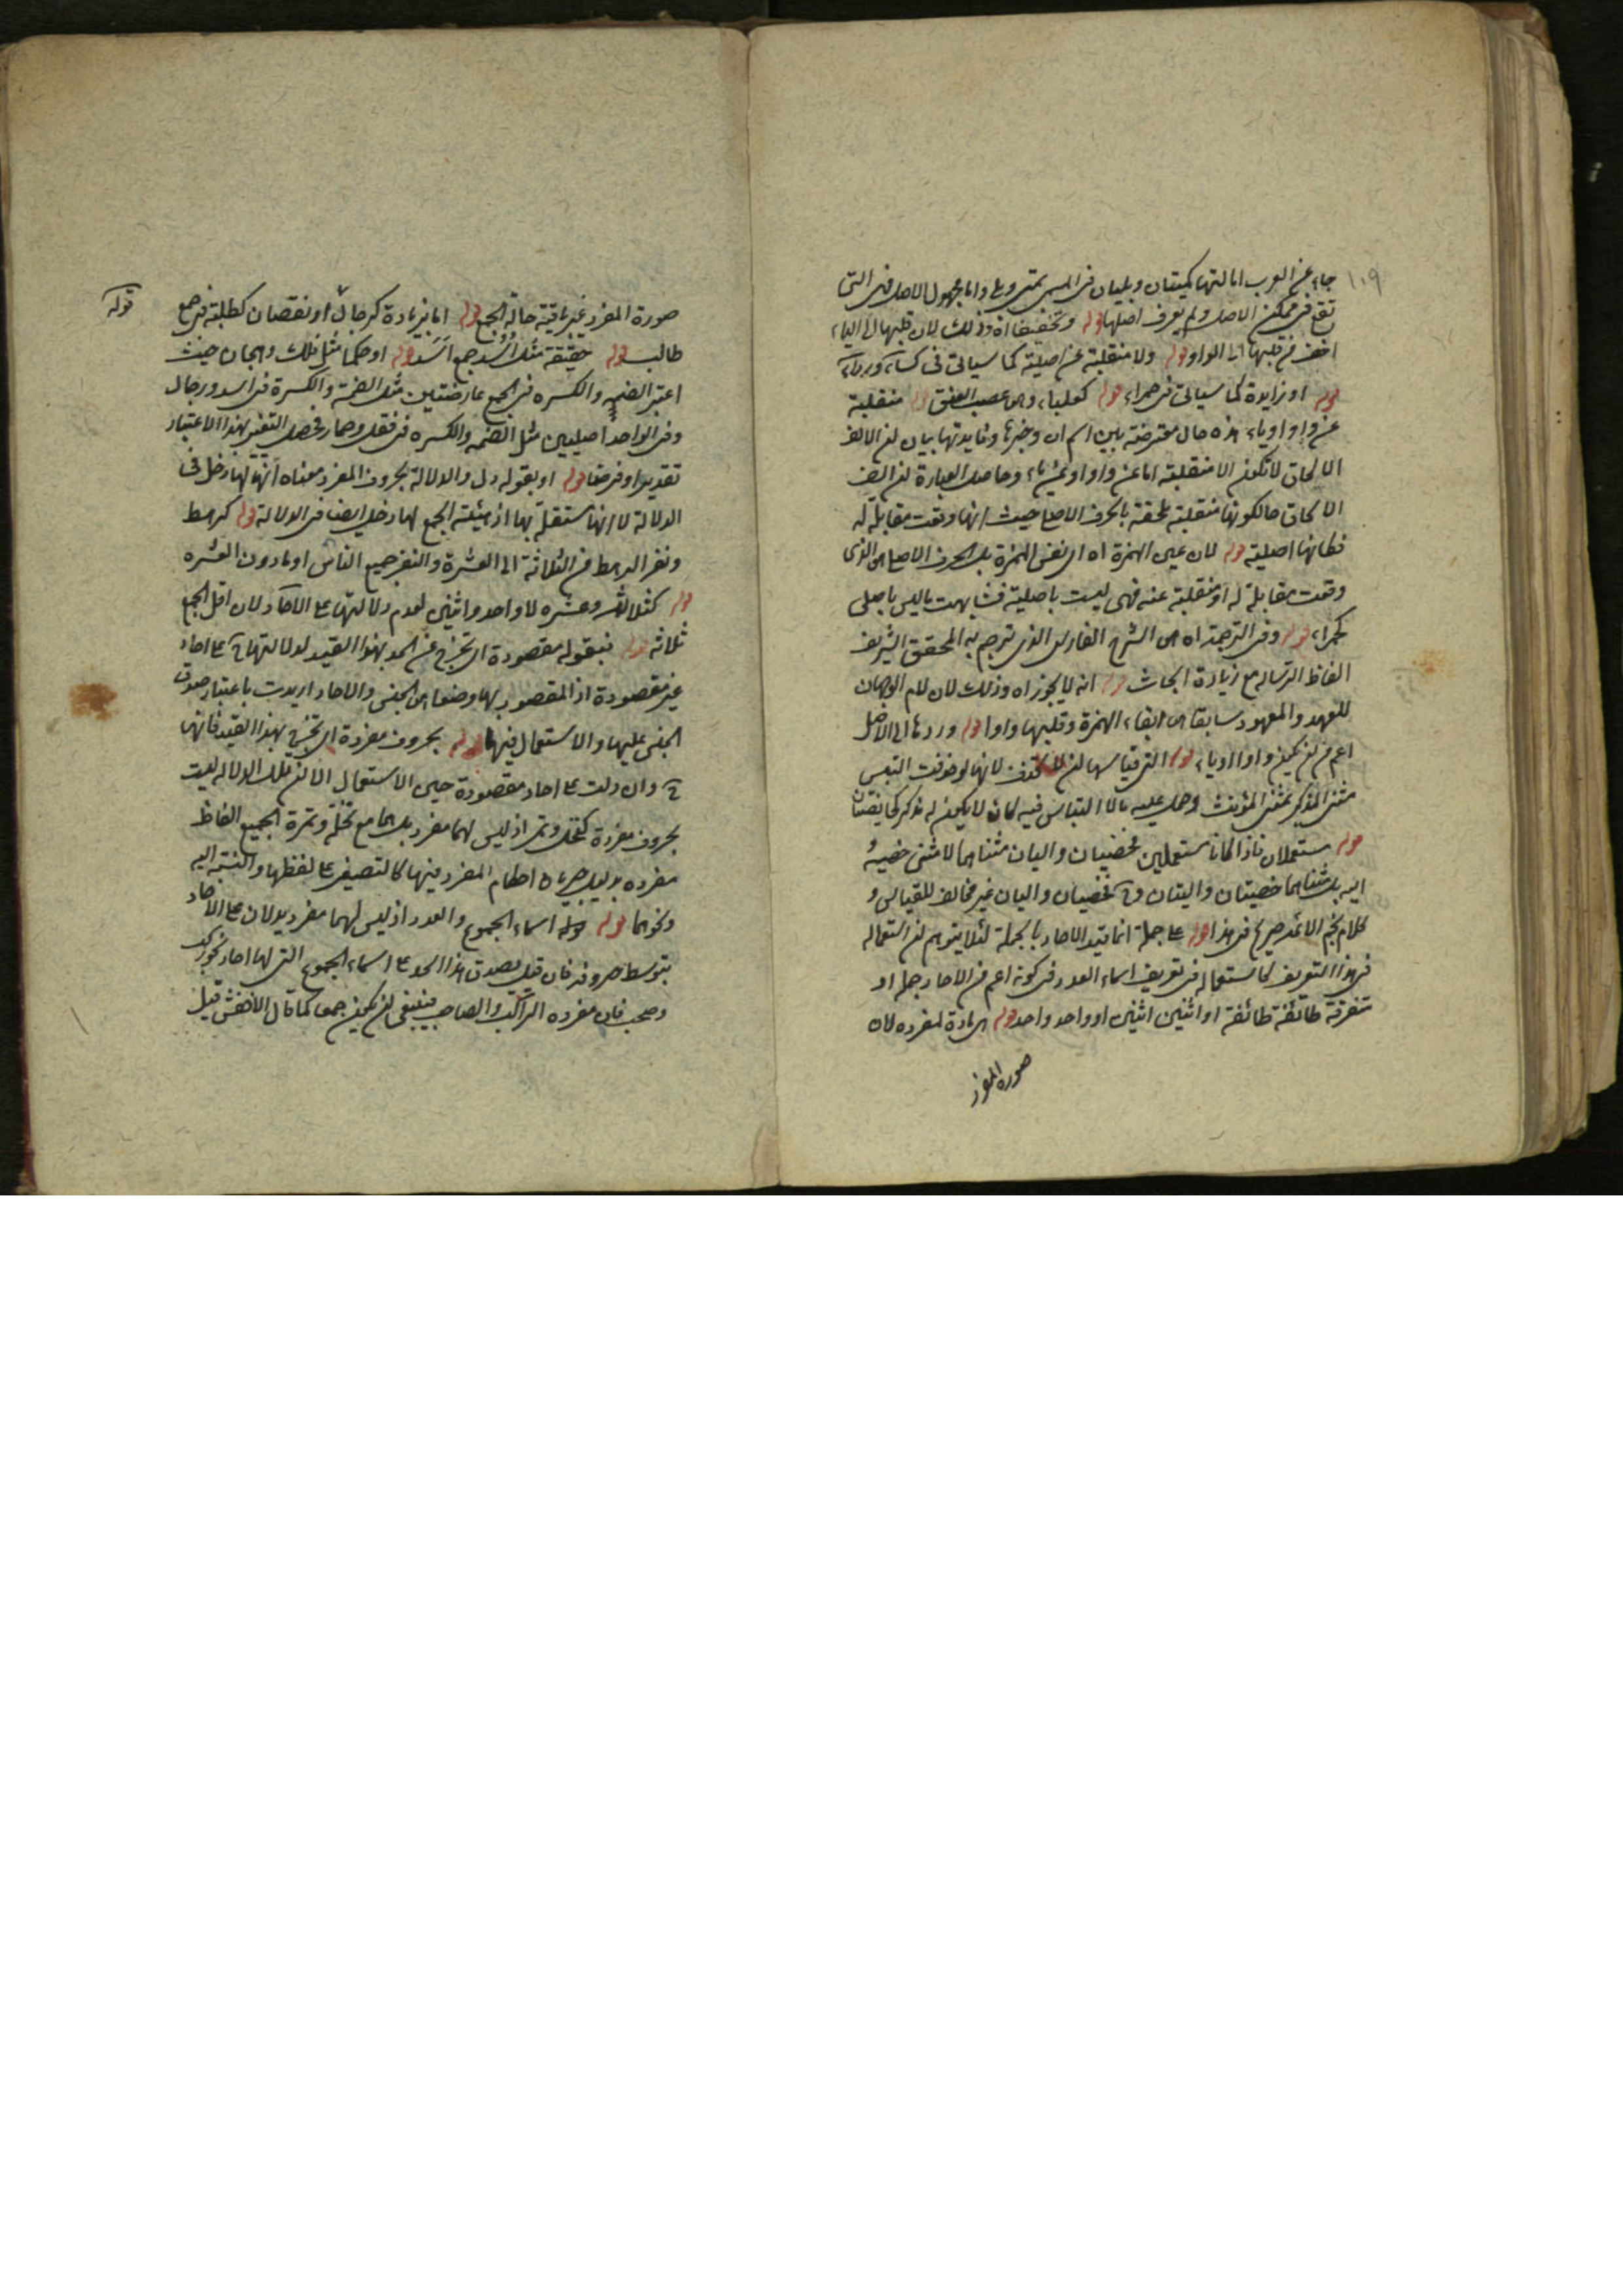 ١٠٩
جاء عن العرب امالتها كمتيان وبليان فى المسمى بمتى وبلى واما مجهول الاصل فهى التى
تقع فى متمكن الاصل ولم يعرف اصلها قوله وتخفيفا اه وذلك لان قلبها الى الياء
اخف من قلبها الى الواو قوله ولا منقلبة عن اصلية كما سياتى فى كساء ورداء
قوله او زايدة كما سياتى فى حمراء قوله كعلباء وهى عصب العنق قوله منقلبة
عن واو او ياء هذه حال معترضة بين اسم ان وخبرها وفايدتها بيان لن الالف
الالحاق لا تكون الا منقلبة اما عن واو او عن ياء وحاصل العبارة لن الف
الالحاق حالكونها منقلبة ملحقة بالحرف الاصلى حيث انها وقعت مقابلة له
فكانها اصلية قوله لان عين الهمزة اه اى نفس الهمزة بل الحرف الاصلى الذى
وقعت مقابلة له او منقلبة عنه فهى ليست باصلية فشابهت ما ليس باصلى
كحمراء قوله وفى الترجمة اه اى الشرح الفارسى الذى ترجم به المحقق الشريف
الفاظ الرسالة مع زيادة ابحاث قوله انه لا يجوز اه وذلك لان لام الوجهان
للعهد والمعهود سابقا اى ابقاء الهمزة وقلبها واوا قوله وردها الى الاصل
اعم من لن يكون واوا او ياء قوله التى قياسها لن لا تحذف لانها لو حذفت التبس
مثنى المذكر بمثنى المؤنث وحمل عليه ما لا التباس فيه كان لا يكون له مذكر كما يقتان
قوله مستعملان فاذا كانا مستعملين فخصيان واليان مثناهما لا مثنى خصية و
الية بل مثناهما خصيتان واليتان فخصيان واليان غير مخالف للقياس و
كلام نجم الائمة صريح فى هذا قوله على جملة انما قيد الاحاد بالجملة لئلا يتوهم لن استعماله
فى هذا التعريف كاستعماله فى تعريف اسماء العدد فى كونه اعم من الاحاد جملة او
متفرقة طائفة طائفة او اثنين اثنين او واحد واحد قوله بمادة لمفرده لان
صورة المفرد
صورة المفرد غير باقية حالة الجمع قوله اما بزيادة كرجال او نقصان كطلبة فى جمع
طالب قوله حقيقة مثل اسد جمع اسد قوله او حكما مثل فلك وهجان حيث
اعتبر الضم والكسره فى الجمع عارضتين مثل الضمة والكسرة فى اسد ورجال
وفى الواحد اصليين مثل الضمه والكسره فى قفل وحمار فحصل التغير بهذا الاعتبار
تقديرا وفرضا قوله او بقوله دل والدلالة بحروف المفرد معناه انها لها دخل فى
الدلالة لا انها مستقلة بها اذ هيئة الجمع لها دخل ايضا فى الدلالة قوله كرهط
ونفر الرهط من الثلاثة الى العشرة والنفر جميع الناس او ما دون العشره
قوله كثلاثه وعشره لا واحد واثنين لعدم دلالتها على الاحاد لان اقل الجمع
ثلاثه قوله فبقوله مقصودة اى تخرج عن الحد بهذا القيد لدلالتها ح على احاد
غير مقصودة اذ المقصود بها وضعا هى الجنس والاحاد اريدت باعتبار صدق
الجنس عليها والاستعمال فيها قوله بحروف مفردة اى تخرج بهذا القيد فانها
ح وان دلت على احاد مقصودة حين الاستعمال الا لن تلك الدلاله ليست
بحروف مفردة كنخل وتمر اذ ليس لهما مفرد بل هما مع نخلة وتمرة الجميع الفاظ
مفرده بدليل جريان احكام المفرد فيها كالتصغير على لفظها والنسبة اليه
ونحوهما قوله اسماء الجموع والعدد اذ ليس لهما مفرد يدلان على الاحاد
بتوسط حروفه فان قيل يصدق هذا الحد على اسماء الجموع التى لها احاد نحو ركب
وصحب فان مفرده الراكب والصاحب فينبغى لن يكون جمعا كما قال الاخفش قيل
قوله